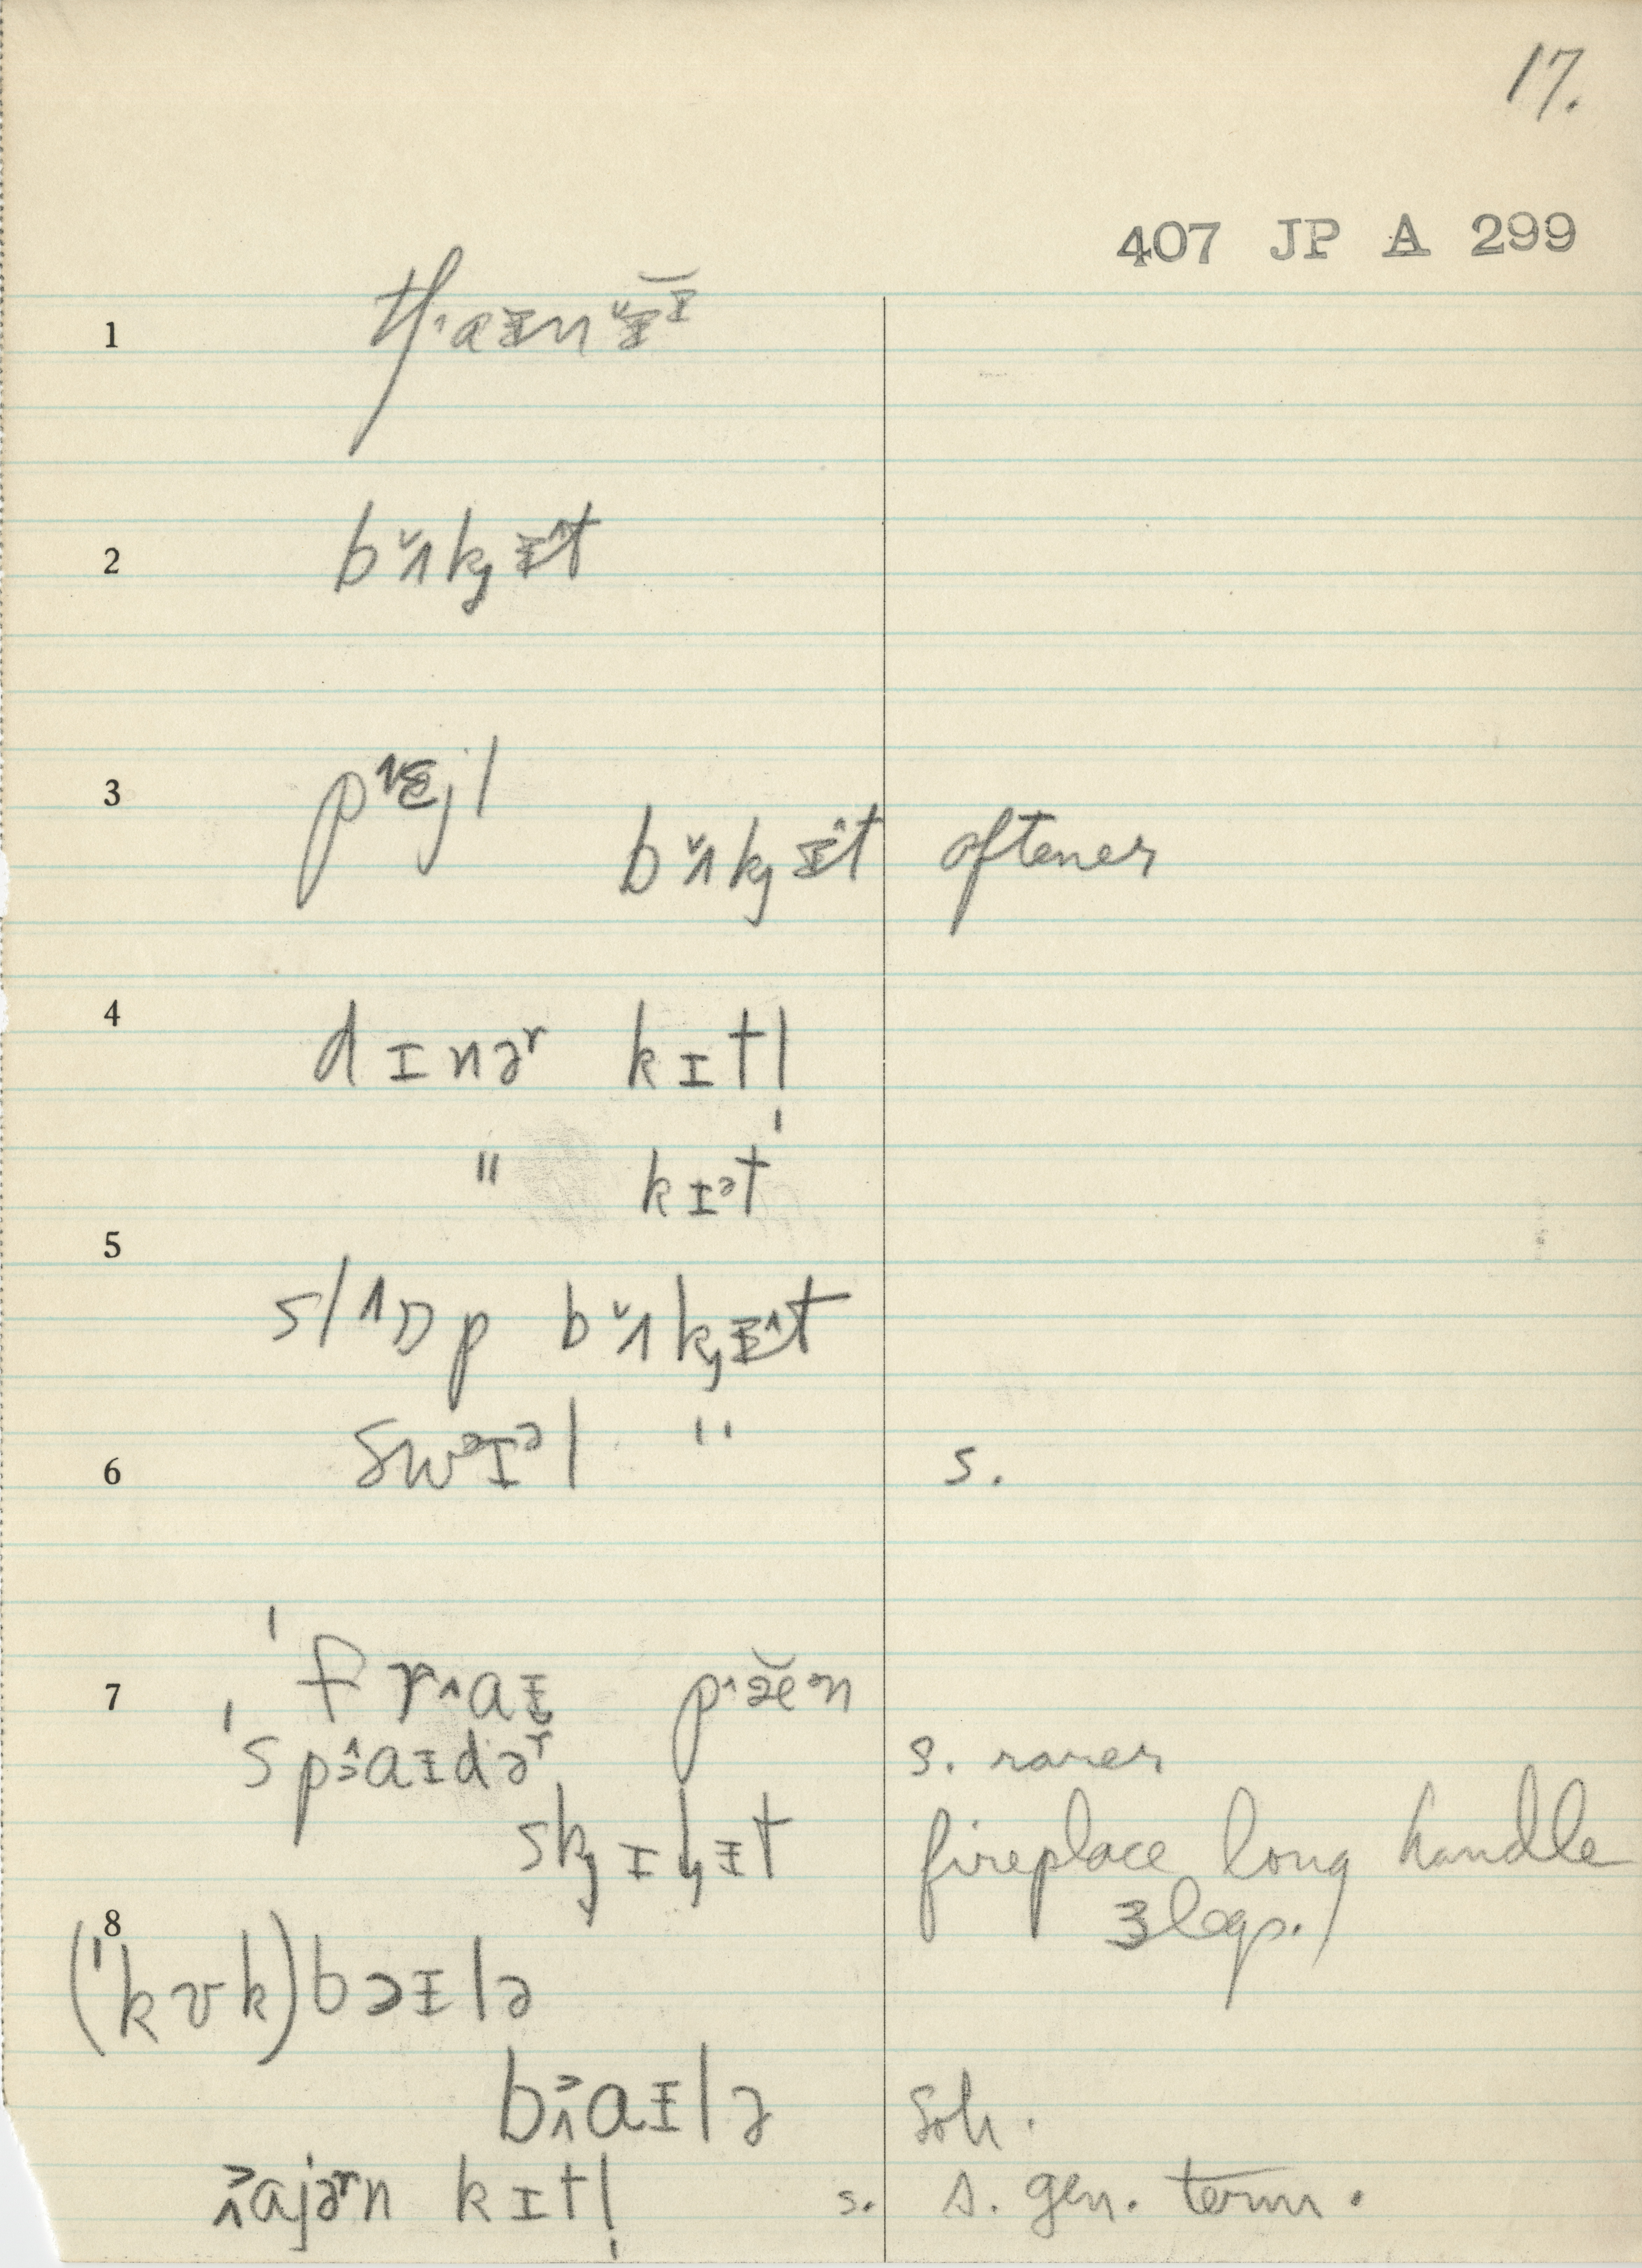 17.
407 JP A 299
1 tʃ˄aɪnɪ̆ɪ
2 bʌ̆kɪ̂t
3 pɛjl
bʌ̆kɪ̂t oftener
4 dɪnəʳ kɪtl
" kɪᵊtˈ
5
slɒp bʌ̆kɪ̂t
6 swᵊɪᵊl " s.
7 ˈfr˄aɪ p˄æ̆ᵊn
ˈspaɪdəʳ s. rarer
skɪlɪt fireplace long handle
3 legs.
8
(ˈkʊk)bɔɪlə
baɪlə soh.
ajəʳn kɪtl̩ s. s. gen. term.